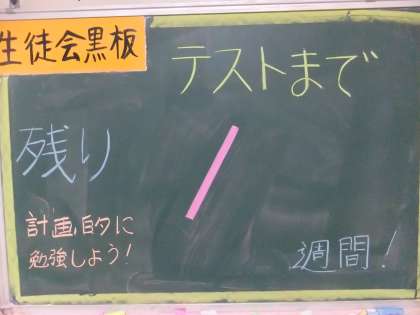 生徒会黒板
テストまで
残り
1
週間!
計画的に
勉強しよう!